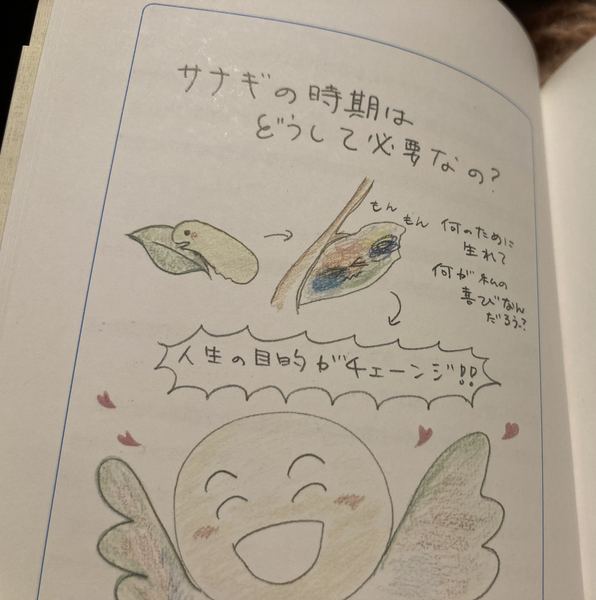 サナギの時期は
どうして必要なの?
もん
もん
何のために
生れて
何が私の
喜びなん
だろう?
人生の目的がチェーンジ!!